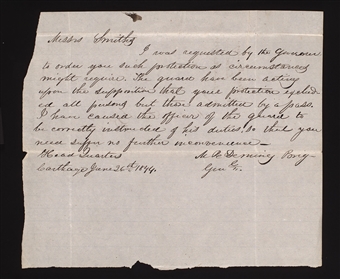 Messrs Smiths
I was requested by the Governor
to order you such protection as circumstances
might require. The guard have been acting
upon the supposition that your protection exclud
ed all persons but those admitted by a pass.
I have caused the officer of the guard to
be correctly instructed of his duties, so that you
need suffer no further inconvenience —
Head Quarters M. R. Deming Brig
Carthage June 26th 1844. Genl.